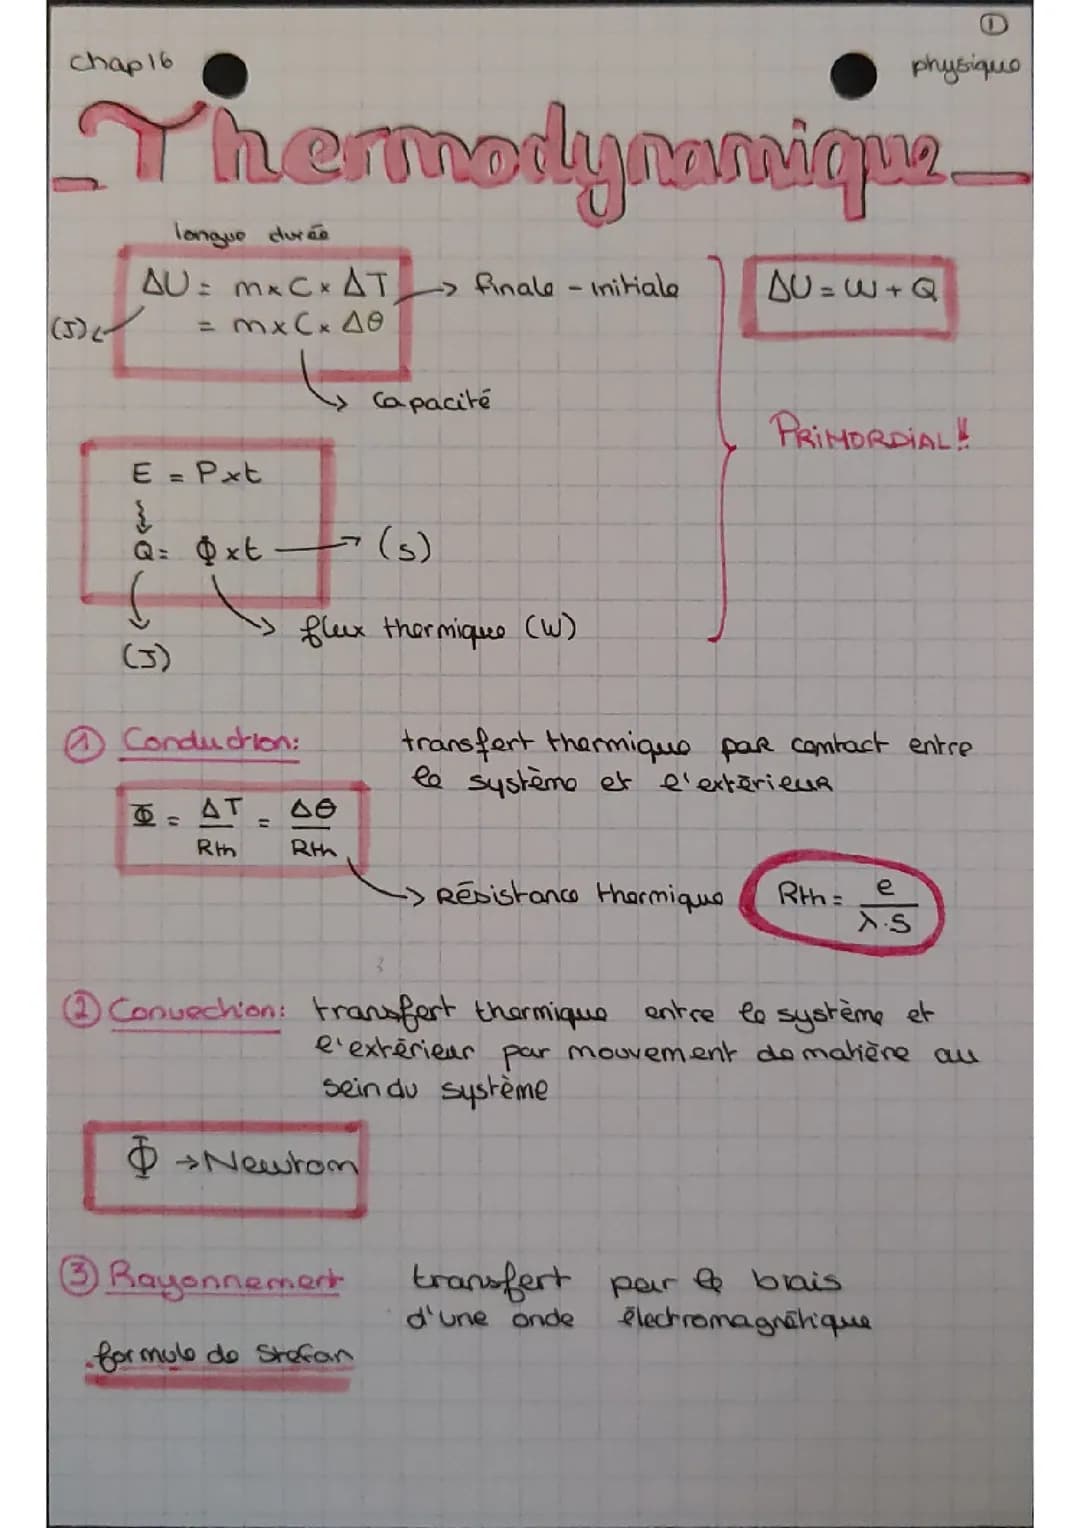 ①
chap 16
physique
Thermodynamique
longue durée
ΔU = m×C×ΔT → finale - initiale
(J)
= m×C×Δθ
Capacité
ΔU = W + Q
PRIMORDIAL!!
E = P×t
Q = Φ×t → (s)
flux thermique (W)
(J)
① Conduction: transfert thermique par contact entre
le système et l'extérieur
Φ = ΔT/Rth = Δθ/Rth
→ Résistance thermique Rth = e/λ.S
② Convection: transfert thermique entre le système et
l'extérieur par mouvement de matière au
sein du système
Φ → Newton
③ Rayonnement transfert par le biais
d'une onde électromagnétique
.formule de Stefan